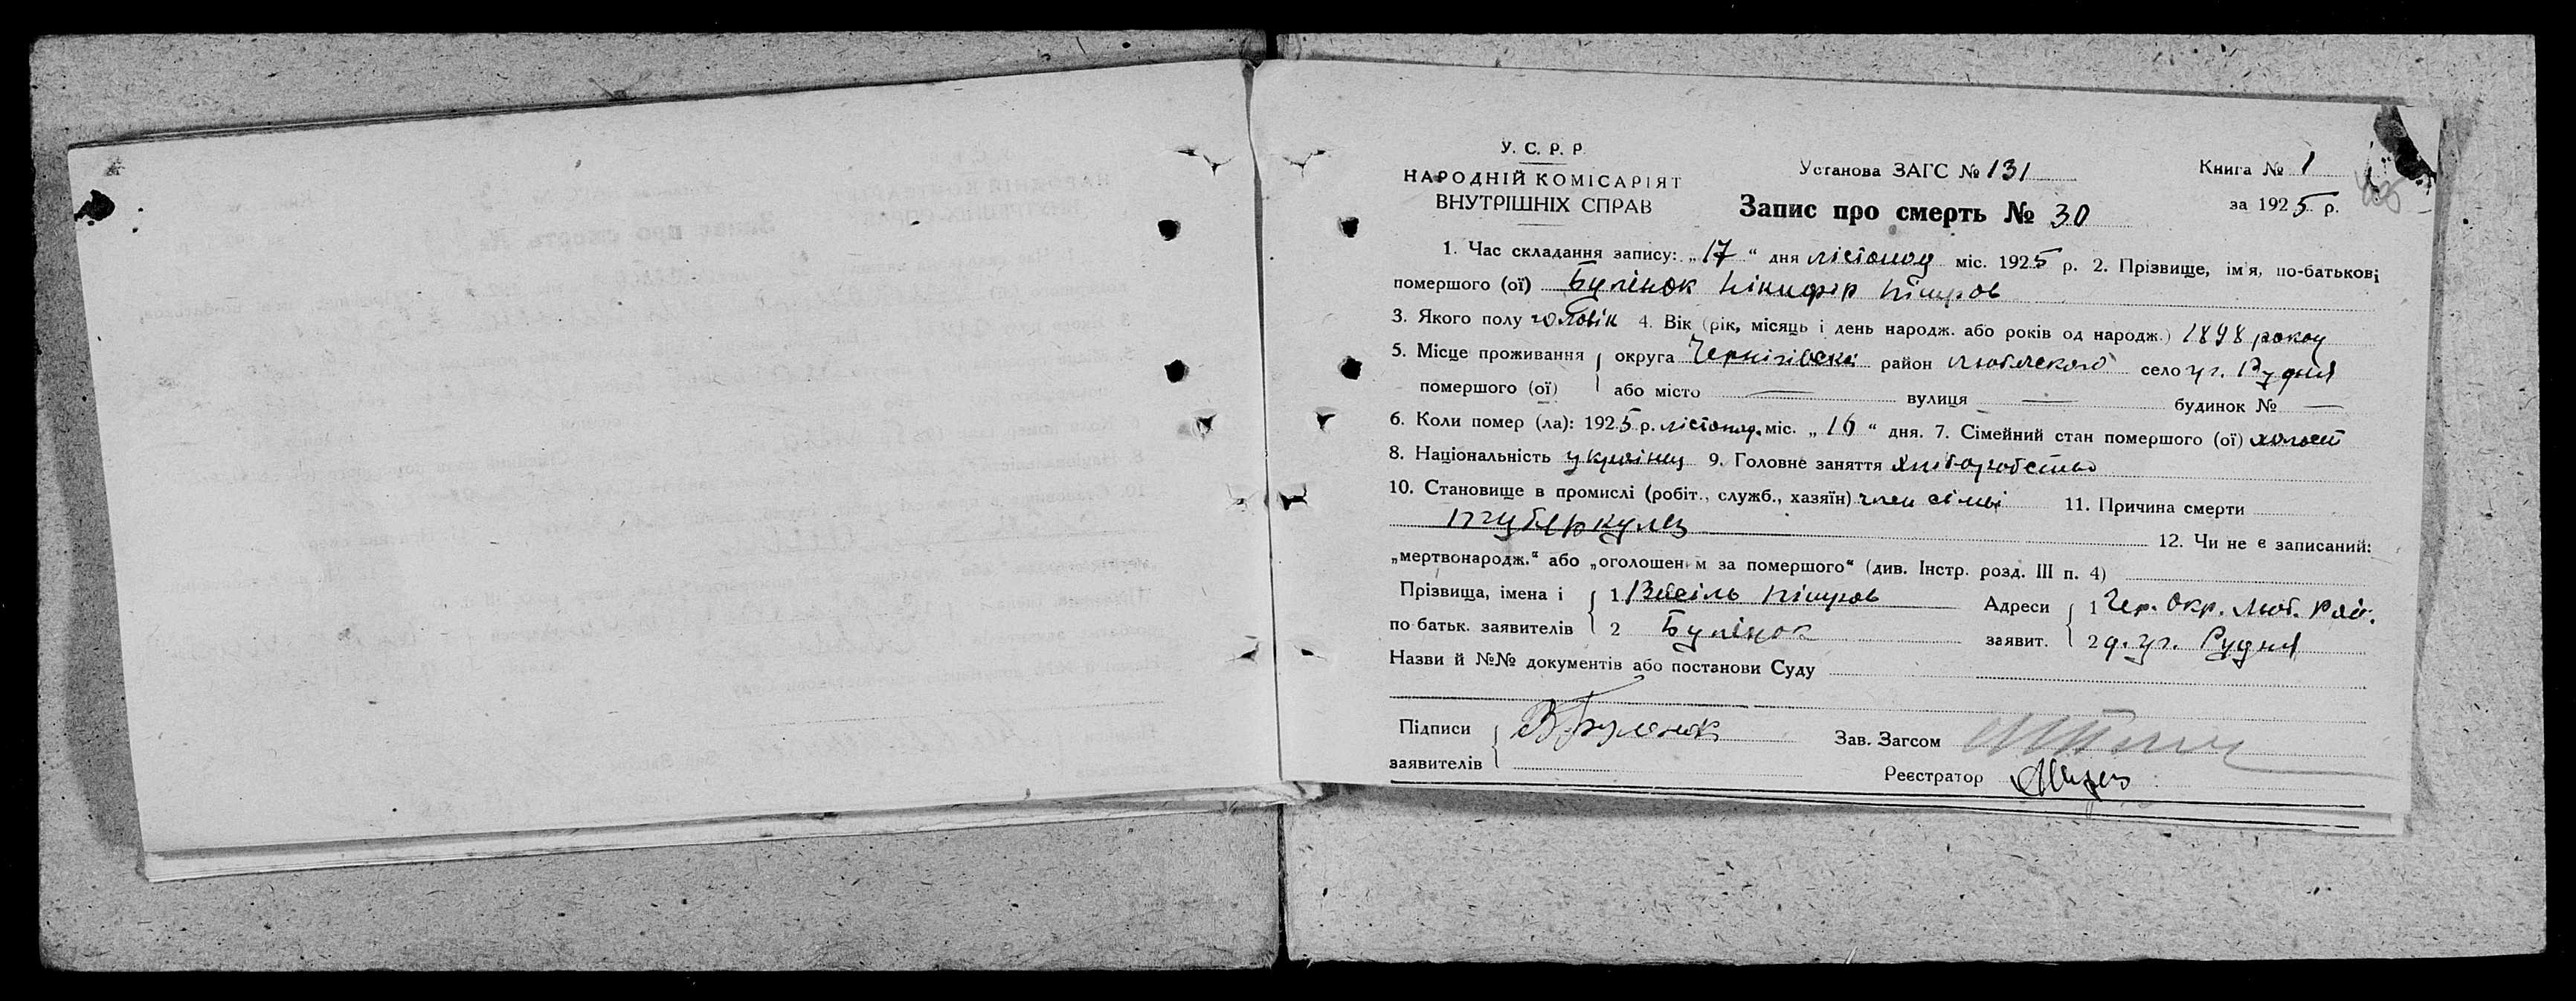 У. С. Р. Р.
НАРОДНІЙ КОМІСАРІЯТ
ВНУТРІШНІХ СПРАВ
Установа ЗАГС № 131
Книга № 1
Запис про смерть № 30
за 1925 р.
1. Час складання запису: „17“ дня лістопад міс. 1925 р. 2. Прізвище, ім'я, по-батькові
помершого (ої) Буленок Нікифор Пітров
3. Якого полу чоловік 4. Вік (рік, місяць і день народж. або років од народж.) 1898 року
5. Місце проживання округа Чернігівськ район Любеского село уг. Рудня
помершого (ої) або місто — вулиця — будинок № —
6. Коли помер (ла): 1925 р. лістопад. міс. „16“ дня. 7. Сімейний стан помершого (ої) холост
8. Національність українец 9. Головне заняття хліборобство
10. Становище в промислі (робіт., служб., хазяїн) член сімьі 11. Причина смерти
туберкулез
12. Чи не є записаний:
„мертвонародж.“ або „оголошеним за помершого“ (див. Інстр. розд. III п. 4)
Прізвища, імена і 1 Васіль Пітров Адреси 1 Чер. Окр. Люб. Рай.
по батьк. заявителів 2 Буленок заявит. 2 д. уг. Рудня
Назви й №№ документів або постанови Суду
Підписи В Буленок Зав. Загсом
заявителів
Реєстратор